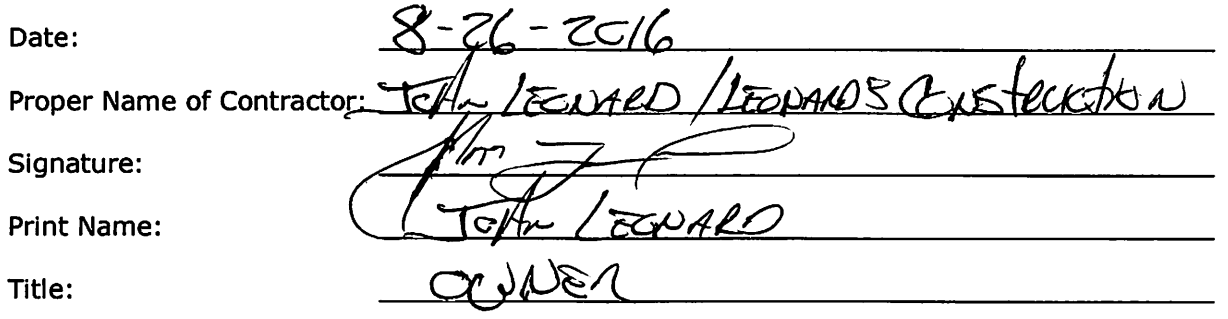 Date: 8-26-2016
Proper Name of Contractor: John LEONARD / LEONARDS CONStruction
Signature:
Print Name: John LEONARD
Title: OWNER